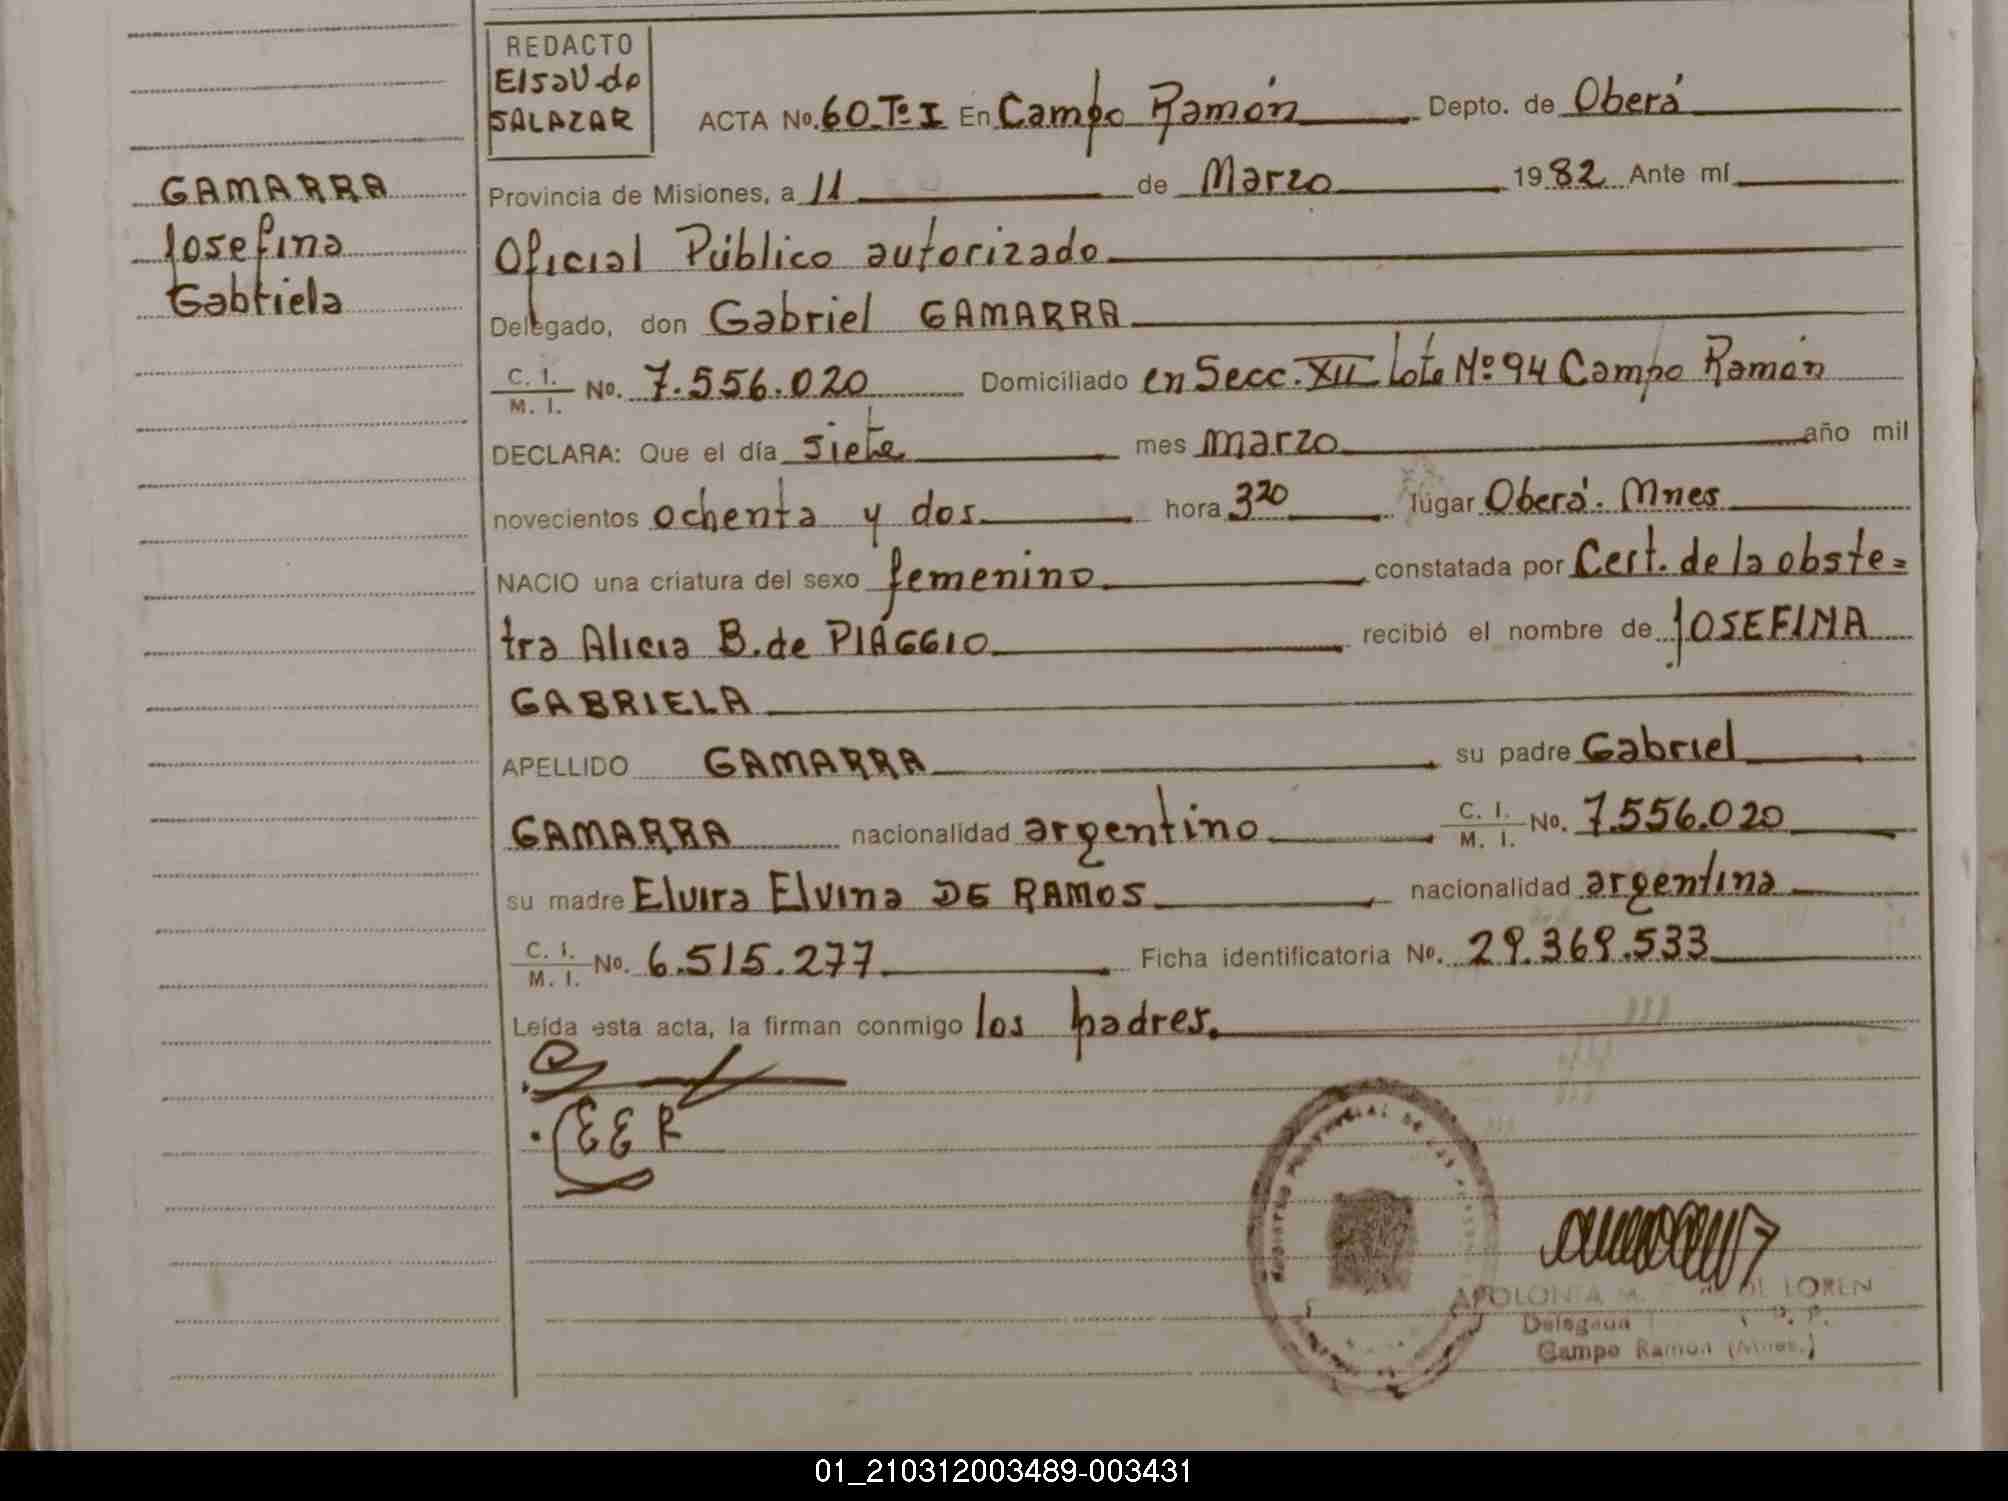 REDACTO
Elsa V. de
SALAZAR
ACTA No. 60 Tº I En Campo Ramón Depto. de Oberá
GAMARRA
Josefina
Gabriela
Provincia de Misiones, a 11 de Marzo 1982 Ante mí
Oficial Público autorizado
Delegado, don Gabriel GAMARRA
C. I. / M. I. No. 7.556.020 Domiciliado en Secc. XII Lote Nº 94 Campo Ramón
DECLARA: Que el día siete mes marzo año mil
novecientos ochenta y dos hora 3 20 lugar Oberá. Mnes
NACIO una criatura del sexo femenino constatada por Cert. de la obste=
tra Alicia B. de PIAGGIO recibió el nombre de JOSEFINA
GABRIELA
APELLIDO GAMARRA su padre Gabriel
GAMARRA nacionalidad argentino C. I. / M. I. No. 7.556.020
su madre Elvira Elvina DE RAMOS nacionalidad argentina
C. I. / M. I. No. 6.515.277 Ficha identificatoria No. 29.369.533
Leída esta acta, la firman conmigo los padres.
EER
APOLONIA M. DE LOREN
Delegada
Campo Ramon (Mnes.)
01_210312003489-003431